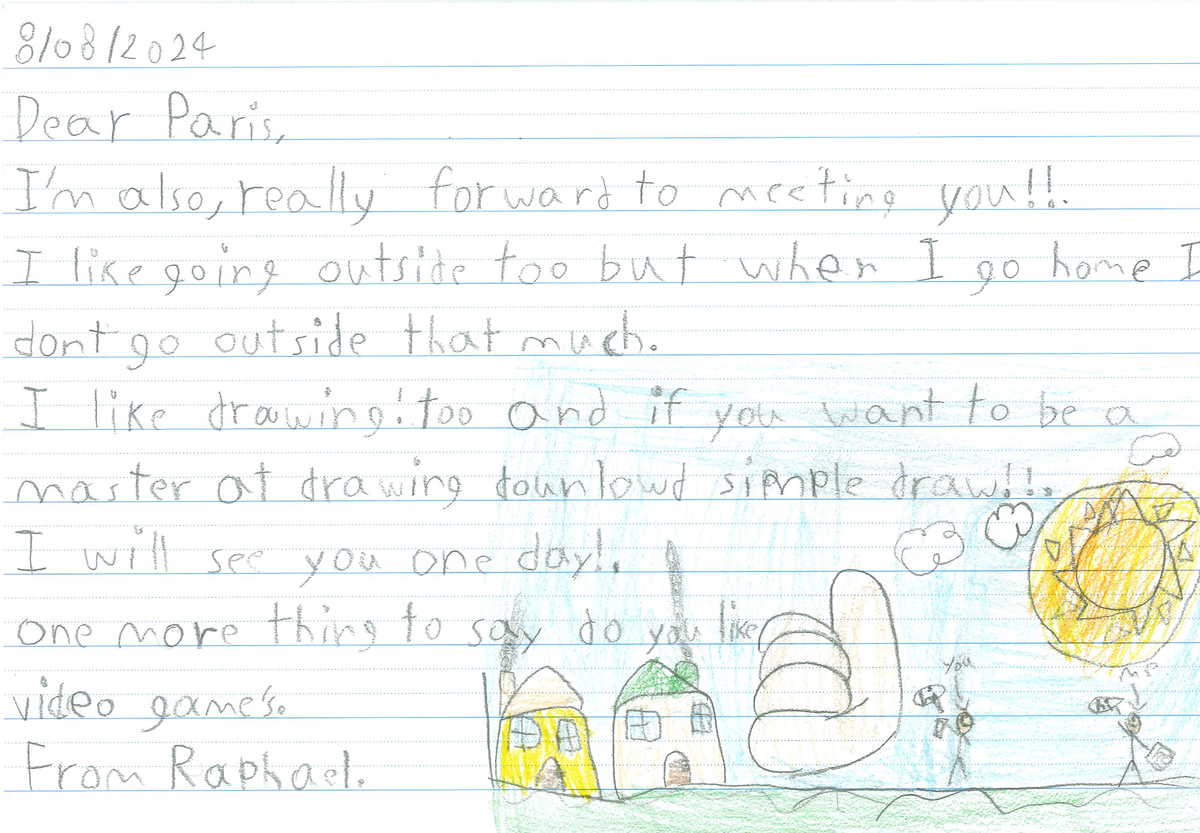 8/08/2024
Dear Paris,
I'm also, really forward to meeting you!!.
I like going outside too but when I go home I
dont go outside that much.
I like drawing! too and if you want to be a
master at drawing dounlowd simple draw!!.
I will see you one day!.
one more thing to say do you like
video game's.
From Raphael.
You
Me
Hi
hi